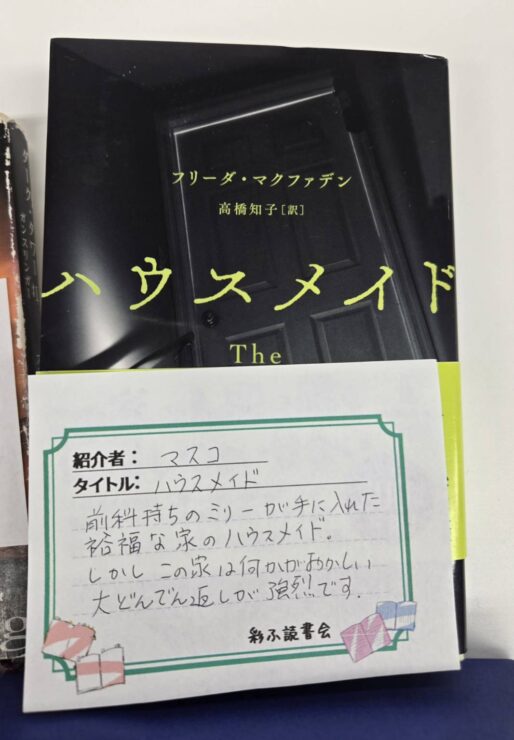 フリーダ・マクファデン
高橋知子[訳]
ハウスメイド
The
紹介者： マスコ
タイトル： ハウスメイド
前科持ちのミリーが手に入れた
裕福な家のハウスメイド。
しかし この家は何かがおかしい
大どんでん返しが強烈です。
彩ふ読書会